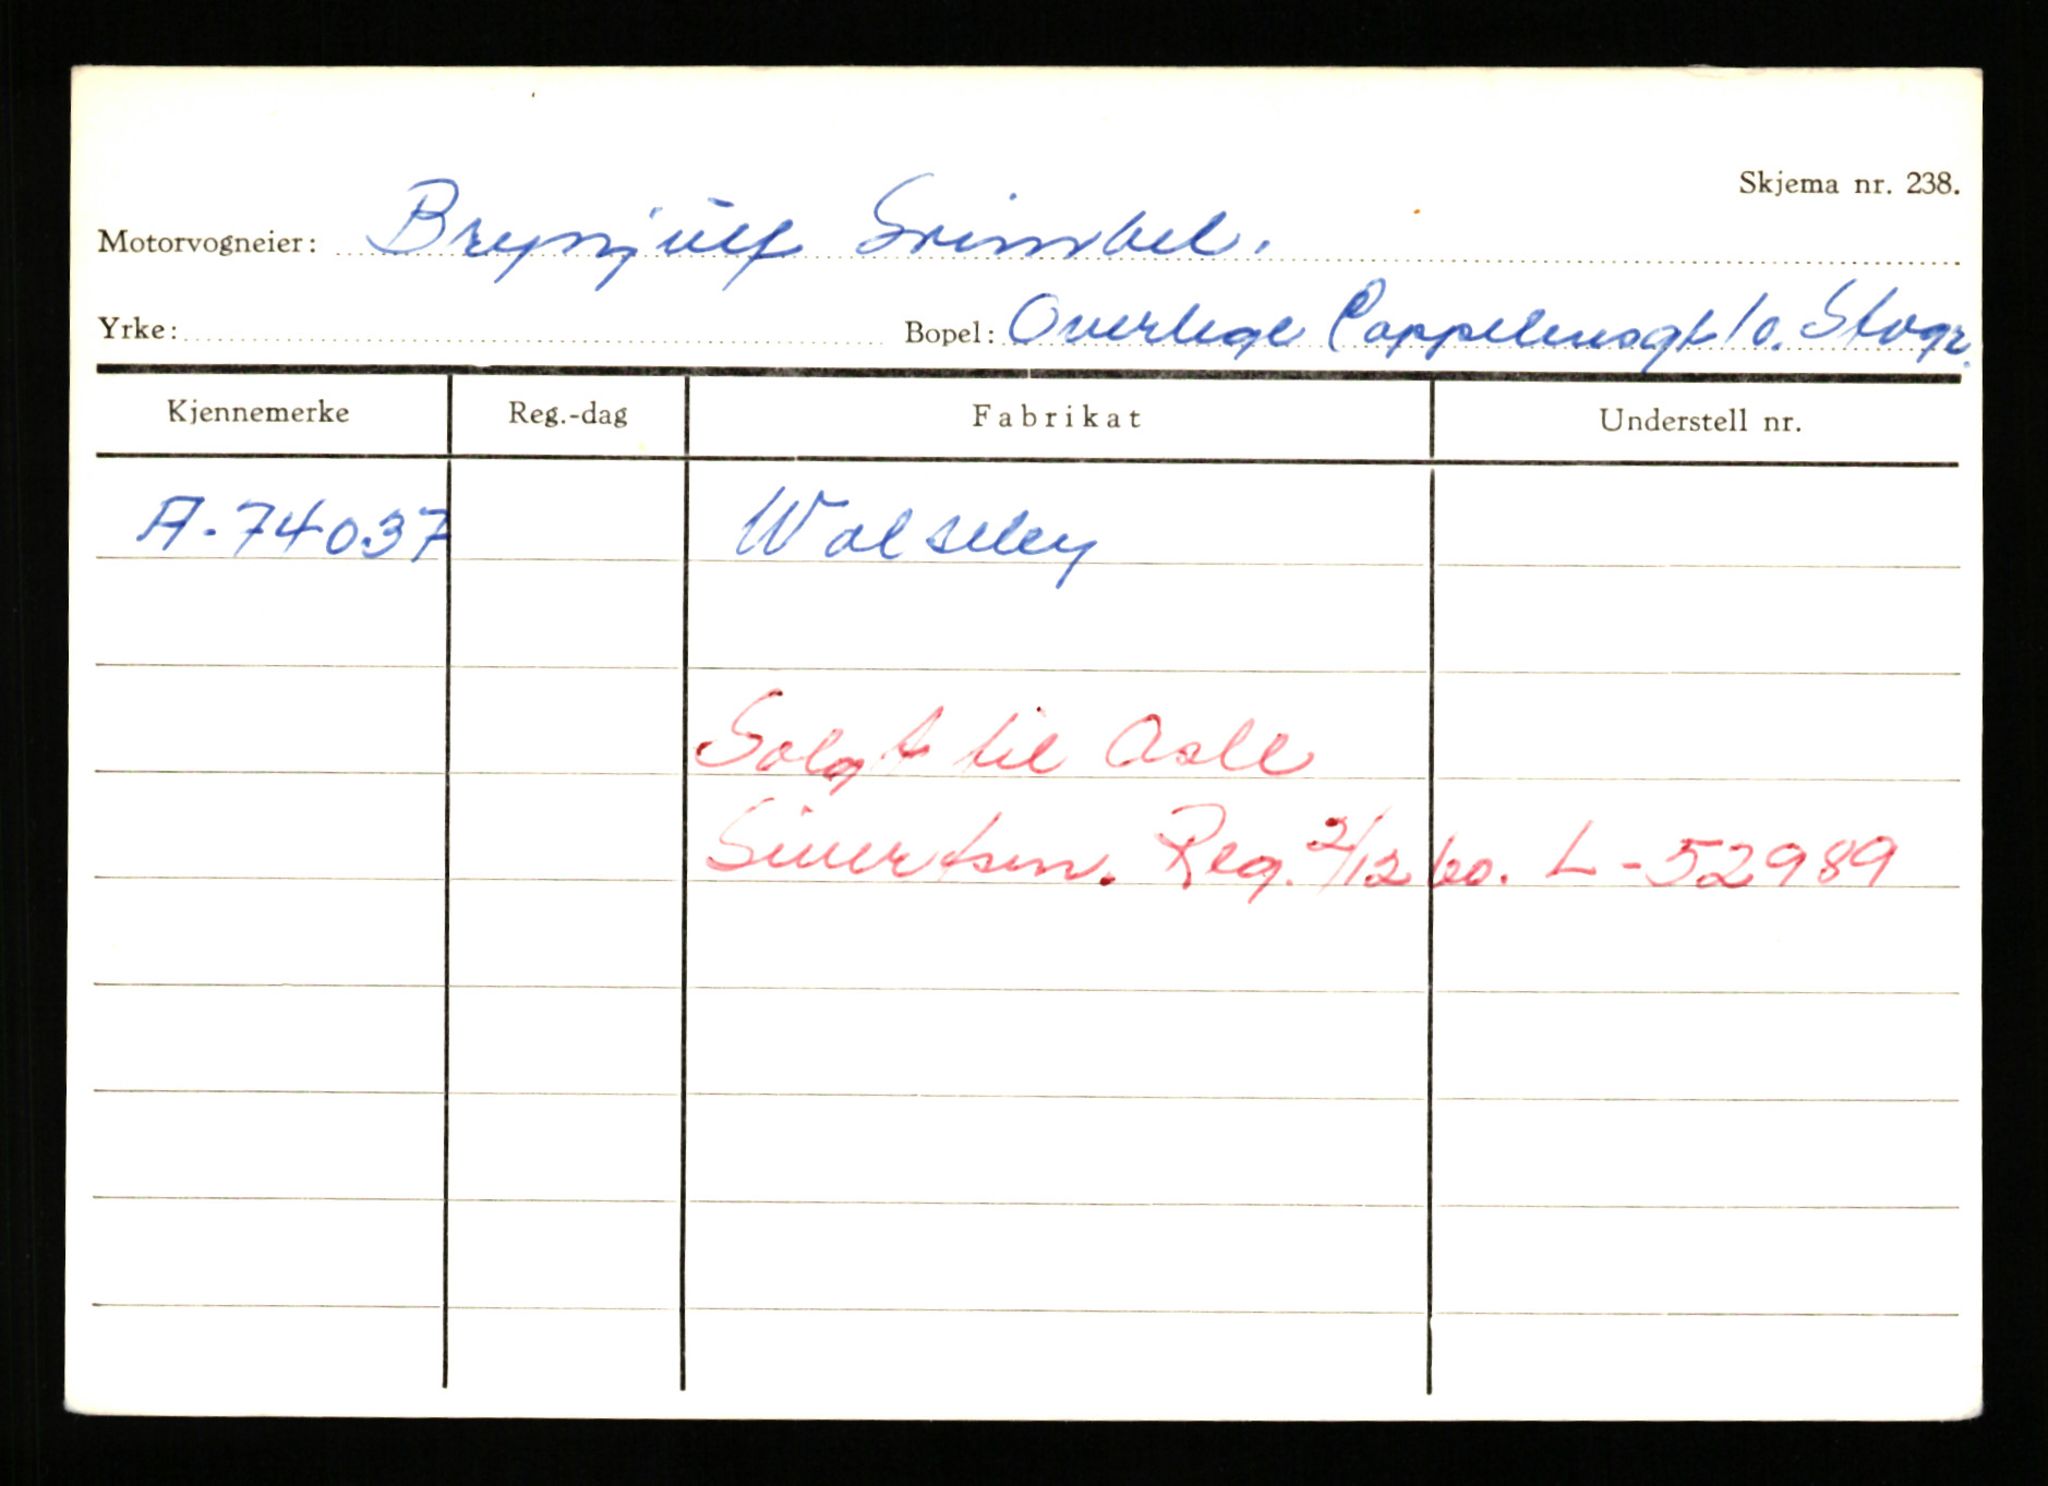 Skjema nr. 238.
Motorvogneier: Brynjulf
Yrke: Bopel: Overlege Cappelensgt 10. Stvgr.
Kjennemerke Reg.-dag Fabrikat Understell nr.
A-74037 Wolseley
Solgt til Asle
Sivertsen. Reg. 2/12 60. L-52989